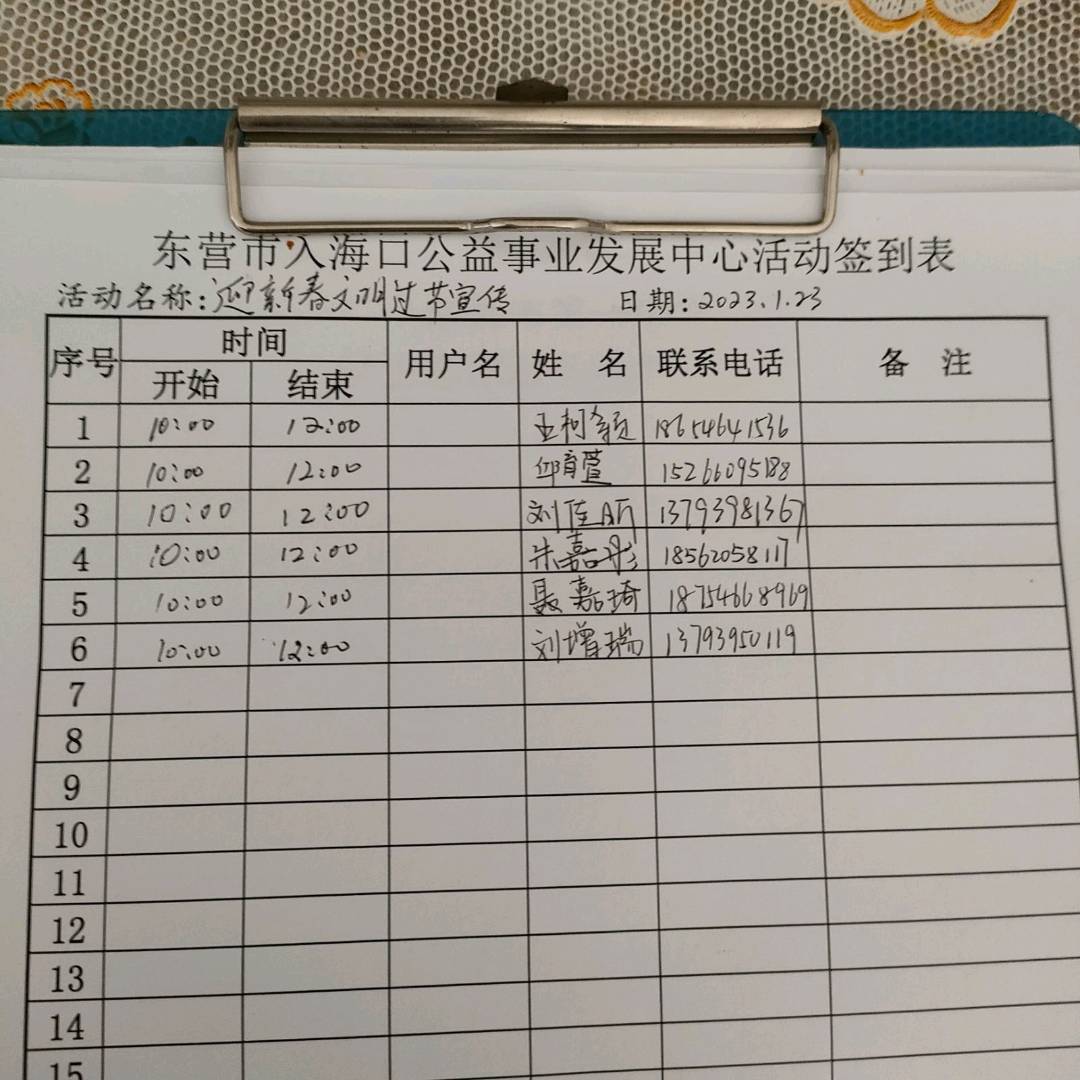 东营市入海口公益事业发展中心活动签到表
活动名称:迎新春文明过节宣传 日期:2023.1.23
序号 时间 用户名 姓 名 联系电话 备 注
开始 结束
1 10:00 12:00 王柯颖 18654641536
2 10:00 12:00 邱育萱 15266095188
3 10:00 12:00 刘佳昕 13793981367
4 10:00 12:00 朱嘉彤 18562058117
5 10:00 12:00 聂嘉琦 18754668969
6 10:00 12:00 刘增瑞 13793950119
7
8
9
10
11
12
13
14
15